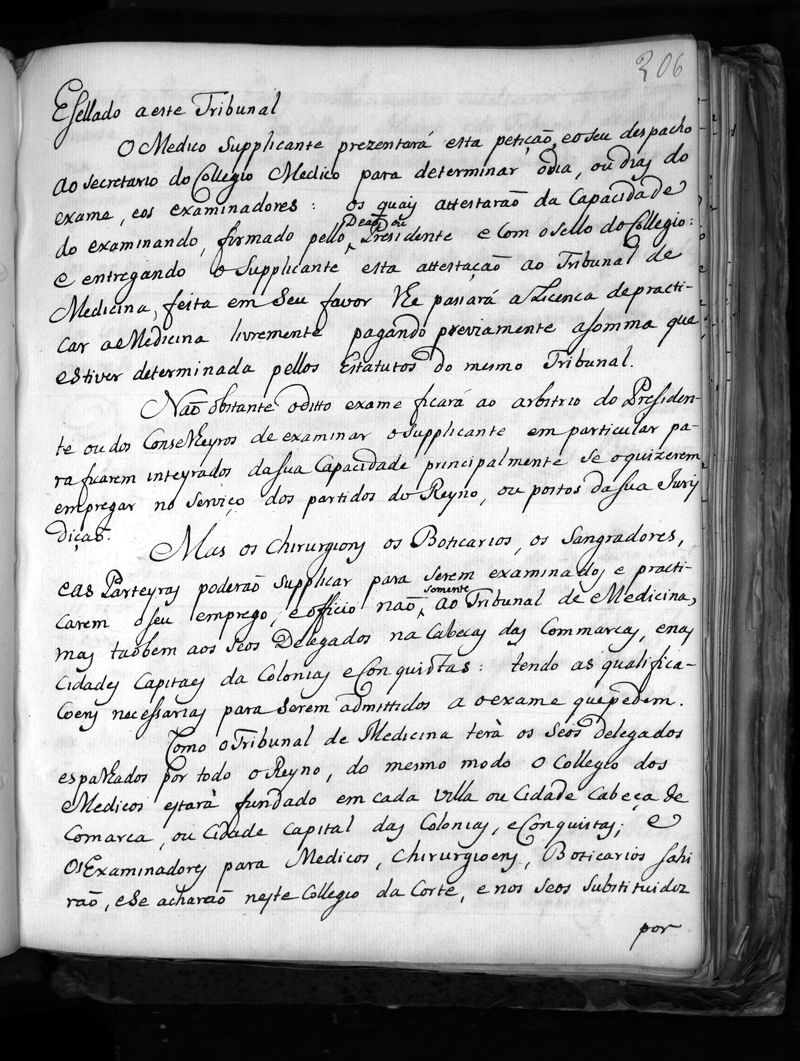 206
Esellado aeste Tribunal
O Medico Supplicante prezentará esta petição, eoseu despacho
ao secretario do Collegio Medico para determinar odia, ou dias do
exame, eos examinadores: os quaes attestarão da Capacidade
do examinando, firmado pello Deaõ, ou Presidente e com o sello do Collegio:
e entregando o Supplicante esta attestação ao Tribunal de
Medicina, feita em Seu favor lhe passará a Licenca depracti-
car aeMedicina livremente pagando previamente asomma que
estiver determinada pellos Estatutos do mesmo Tribunal.
Naõ obstante oditto exame ficará ao arbitrio do Presiden-
te ou dos Conselheyros de examinar o Supplicante em particular pa-
ra ficarem inteyrados dasua Capacidade principalmente se oquizerem
empregar no serviço dos partidos do Reyno, ou portos dasua Jurij
diçaõ.
Mas os Chirurgions os Boticarios, os Sangradores,
eas Parteyras poderaõ supplicar para serem examinados e practi-
carem oseu emprego, e officio naõ somente ao Tribunal de Medicina,
mas taõbem aos seos Delegados na Cabeças das Commarcas, enas
Cidades Capitaes da Colonias eConquistas: tendo as qualifica-
Coens necessarias para serem admittidos a oexame que pedem.
Como oTribunal de Medicina terà os seos delegados
espalhados por todo o Reyno, do mesmo modo o Collegio dos
eMedicos estarà fundado em cada villa ou Cidade cabeça de
Comarca, ou Cidade Capital das Colonias, eConquistas; e
Os Examinadores para Medicos, Chirurgioens, Boticarios sahi
raõ, ese acharaõ neste Collegio da Corte, e nos seos substituidoz
por